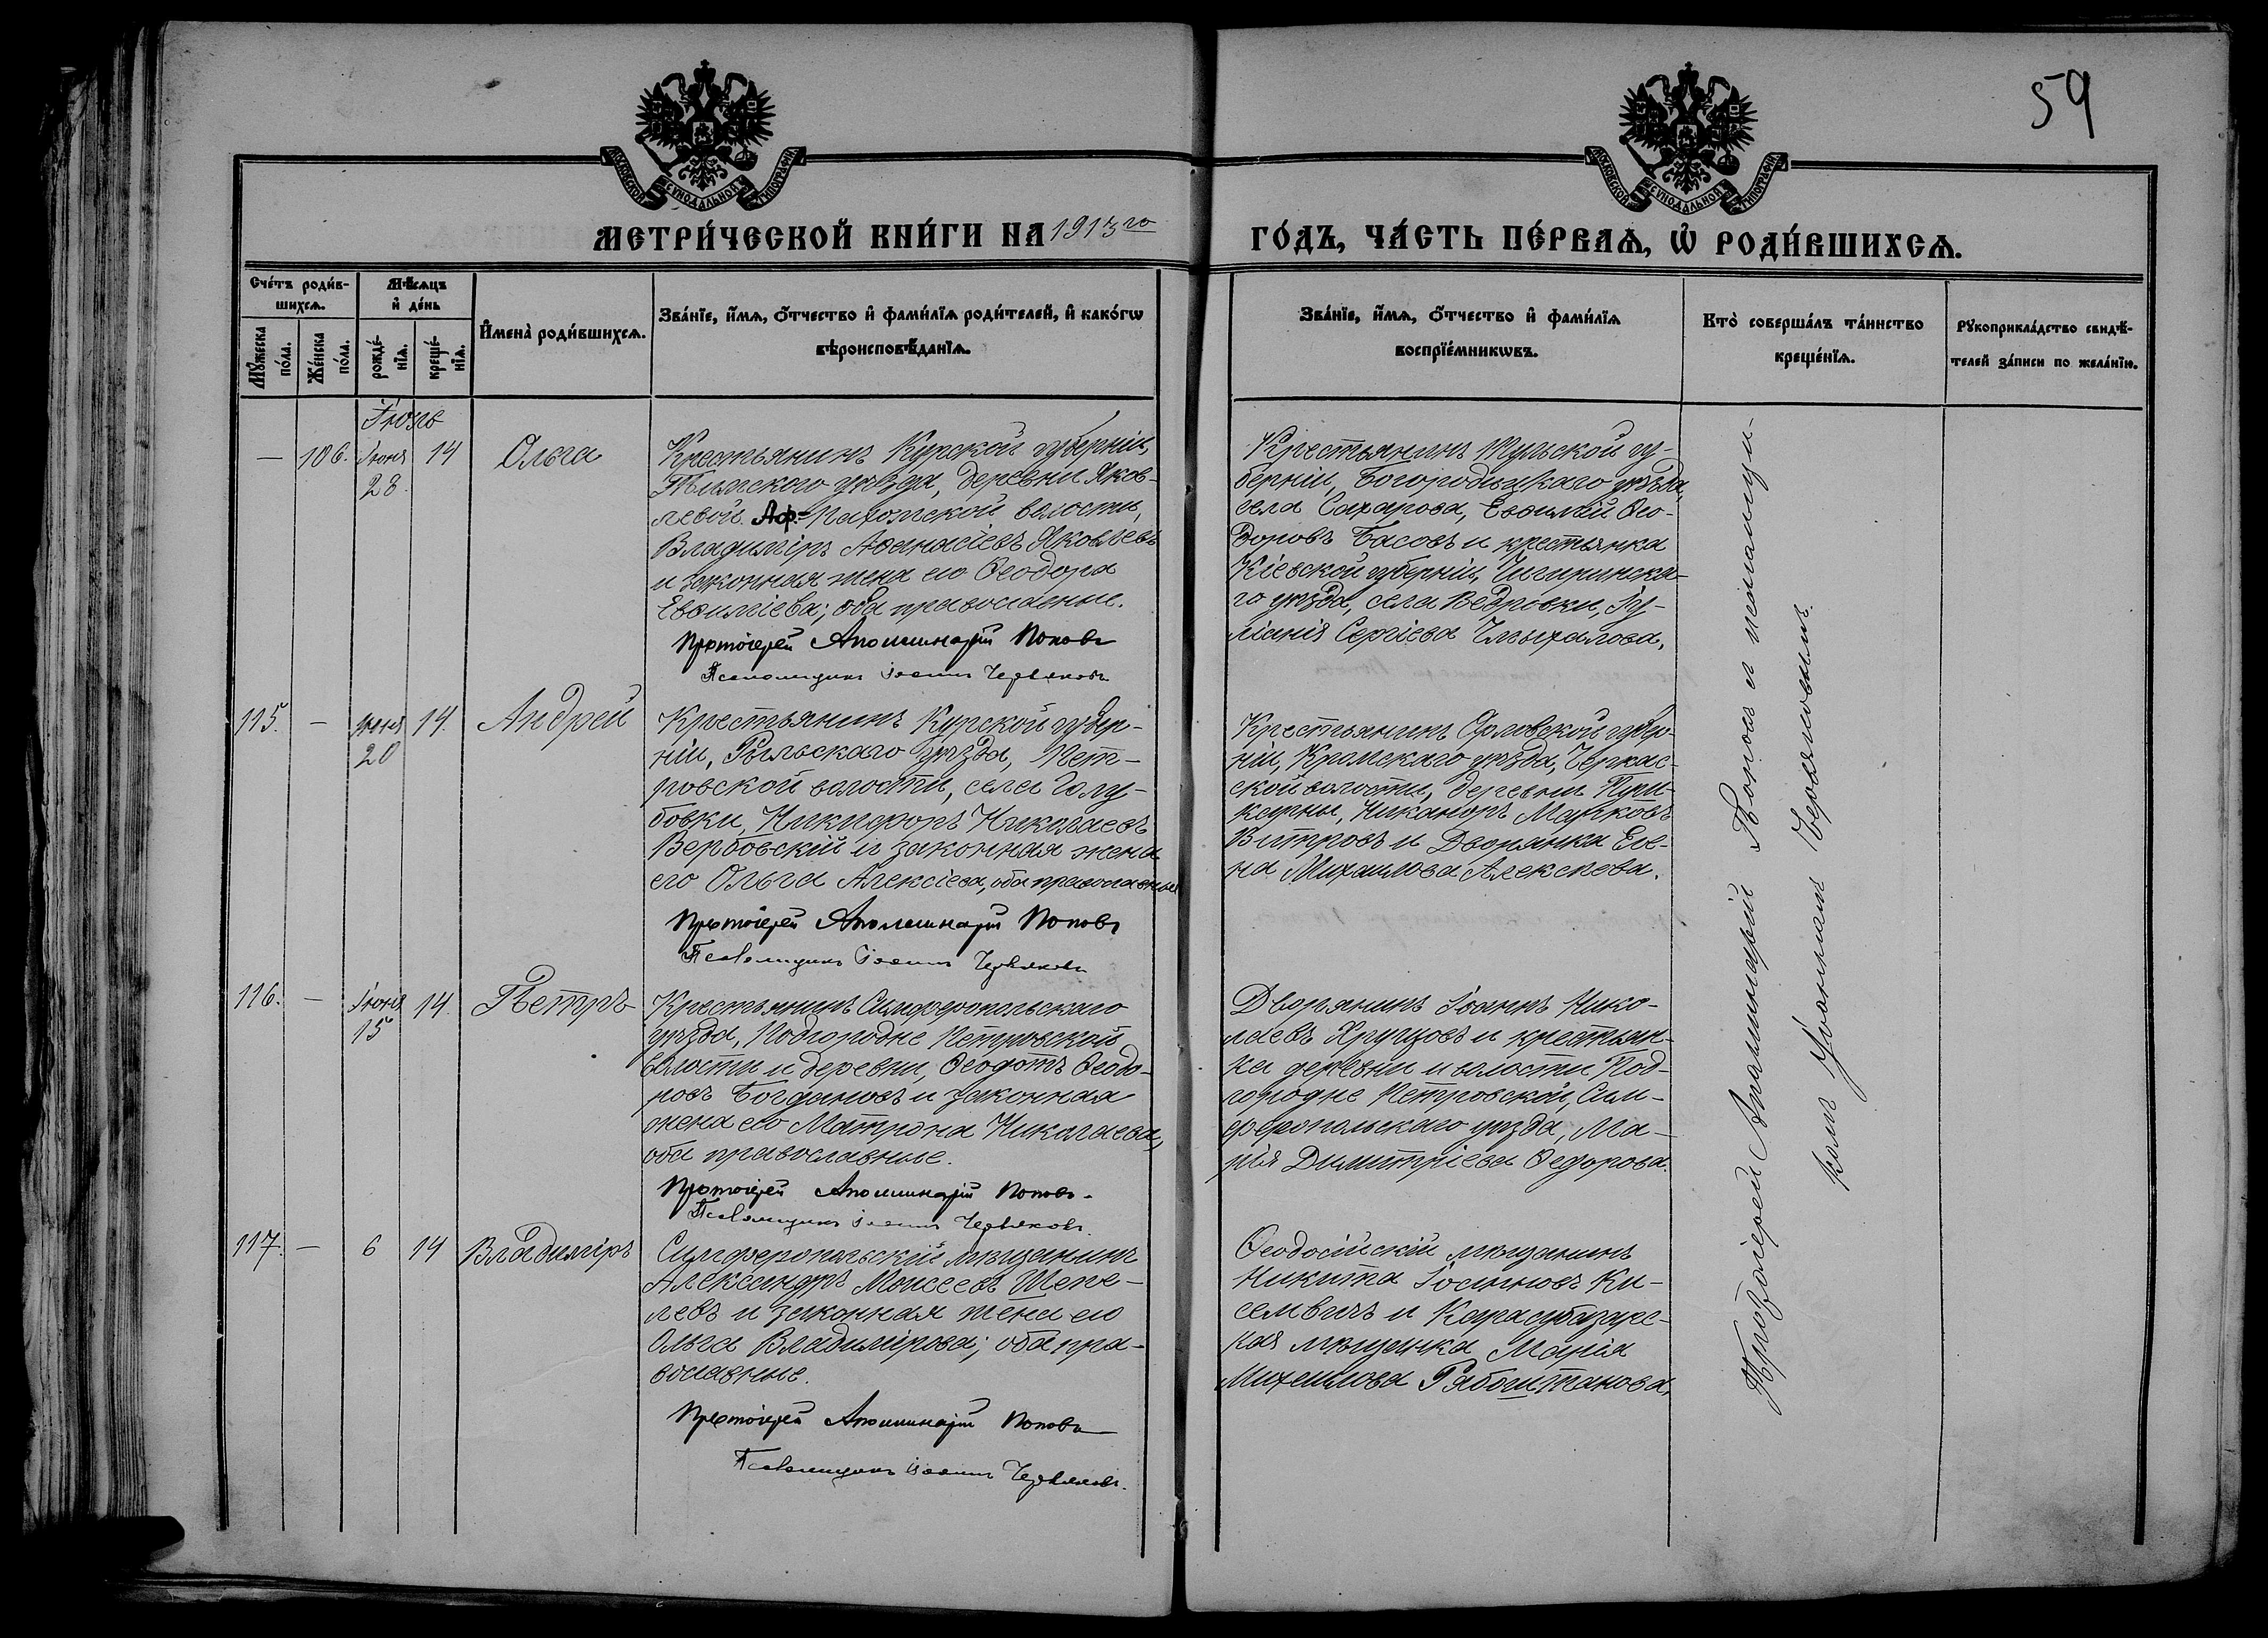 59
МОСКОВСКОЙ СѴНОДАЛЬНОЙ ТИПОГРАФІИ
МОСКОВСКОЙ СѴНОДАЛЬНОЙ ТИПОГРАФІИ
МЕТРИ́ЧЕСКОЙ КНИ́ГИ НА 1913го ГО́ДЪ, ЧА́СТЬ ПЕ́РВАѦ, Ѡ҆ РОДИ́ВШИХСѦ.
Сче́тъ роди́в-
шихсѧ.
Мꙋ́жеска
по́ла.
Же́нска
по́ла.
Мѣ́сѧцъ
и҆ де́нь
рожде́-
нїѧ.
креще́-
нїѧ.
И҆мена̀ роди́вшихсѧ.
Зва́нїе, и҆́мѧ, о҆́тчество и҆ фами́лїѧ роди́телей, и҆ како́гѡ
вѣроисповѣ́данїѧ.
Зва́нїе, и҆́мѧ, о҆́тчество и҆ фами́лїѧ
воспрїе́мникѡвъ.
Кто̀ соверша́лъ та́инство
креще́нїѧ.
Рꙋкоприкла́дство свидѣ́-
телей за́писи по жела́нїю.
Іюль
— 106. Іюня 14 Ольга
28.
Крестьянинъ Курской губерніи,
Тимскаго уѣзда, деревни Яков-
левой волости,
Владиміръ Аѳанасіевъ Яковлевъ
и законная жена его Ѳеодора
Евѳиміева; оба православные.
Протоіерей Аполлинарій Поповъ
Псаломщикъ Іоаннъ Червяковъ
Крестьянинъ Тульской гу-
берніи, Богородицкаго уѣзда,
села Сахарова, Евѳимій Ѳео-
доровъ Басовъ и крестьянка
Кіевской губерніи, Чигиринска-
го уѣзда, села Ведровки, Іу-
ліанія Сергіева
115. — Іюня 14. Андрей
20
Крестьянинъ Курской губер-
ніи, Рыльскаго уѣзда, Пет-
ровской волости, села Голу-
бовки, Никифоръ Николаевъ
Вербовскій и законная жена
его Ольга Алексіева, оба православные
Протоіерей Аполлинарій Поповъ
Псаломщикъ Іоаннъ Червяковъ
Крестьянинъ Орловской губер-
ніи, Кромскаго уѣзда, Черкас-
ской волости, деревни
Никаноръ Марковъ
Витровъ и Дворянка Еле-
на Михаилова Алексѣева.
116. — Іюня 14. Петръ
15
Крестьянинъ Симферопольскаго
уѣзда, Подгородне Петровской
волости и деревни, Ѳеодотъ Ѳеодо-
ровъ Богдановъ и законная
жена его Матрона Николаева,
оба православные.
Протоіерей Аполлинарій Поповъ.
Псаломщикъ Іоаннъ Червяковъ.
Дворянинъ Іоаннъ Нико-
лаевъ Хрущовъ и крестьян-
ка деревни и волости Под-
городне Петровской, Сим-
феропольскаго уѣзда, Ма-
рія Димитріева Ѳедорова.
117. — 6 14 Владиміръ
Симферопольскій мѣщанинъ
Александръ Моисеевъ Шепе-
левъ и законная жена его
Ольга Владимірова; оба пра-
вославные.
Протоіерей Аполлинарій Поповъ
Псаломщикъ Іоаннъ Червяковъ.
Ѳеодосійскій мѣщанинъ
Никита Іоанновъ Ки-
селевичъ и Карасубазарс-
кая мѣщанка Марія
Михаилова Рябоштанова.
Протоіерей Аполлинарій Поповъ и псаломщи-
комъ Іоанномъ Червяковымъ.